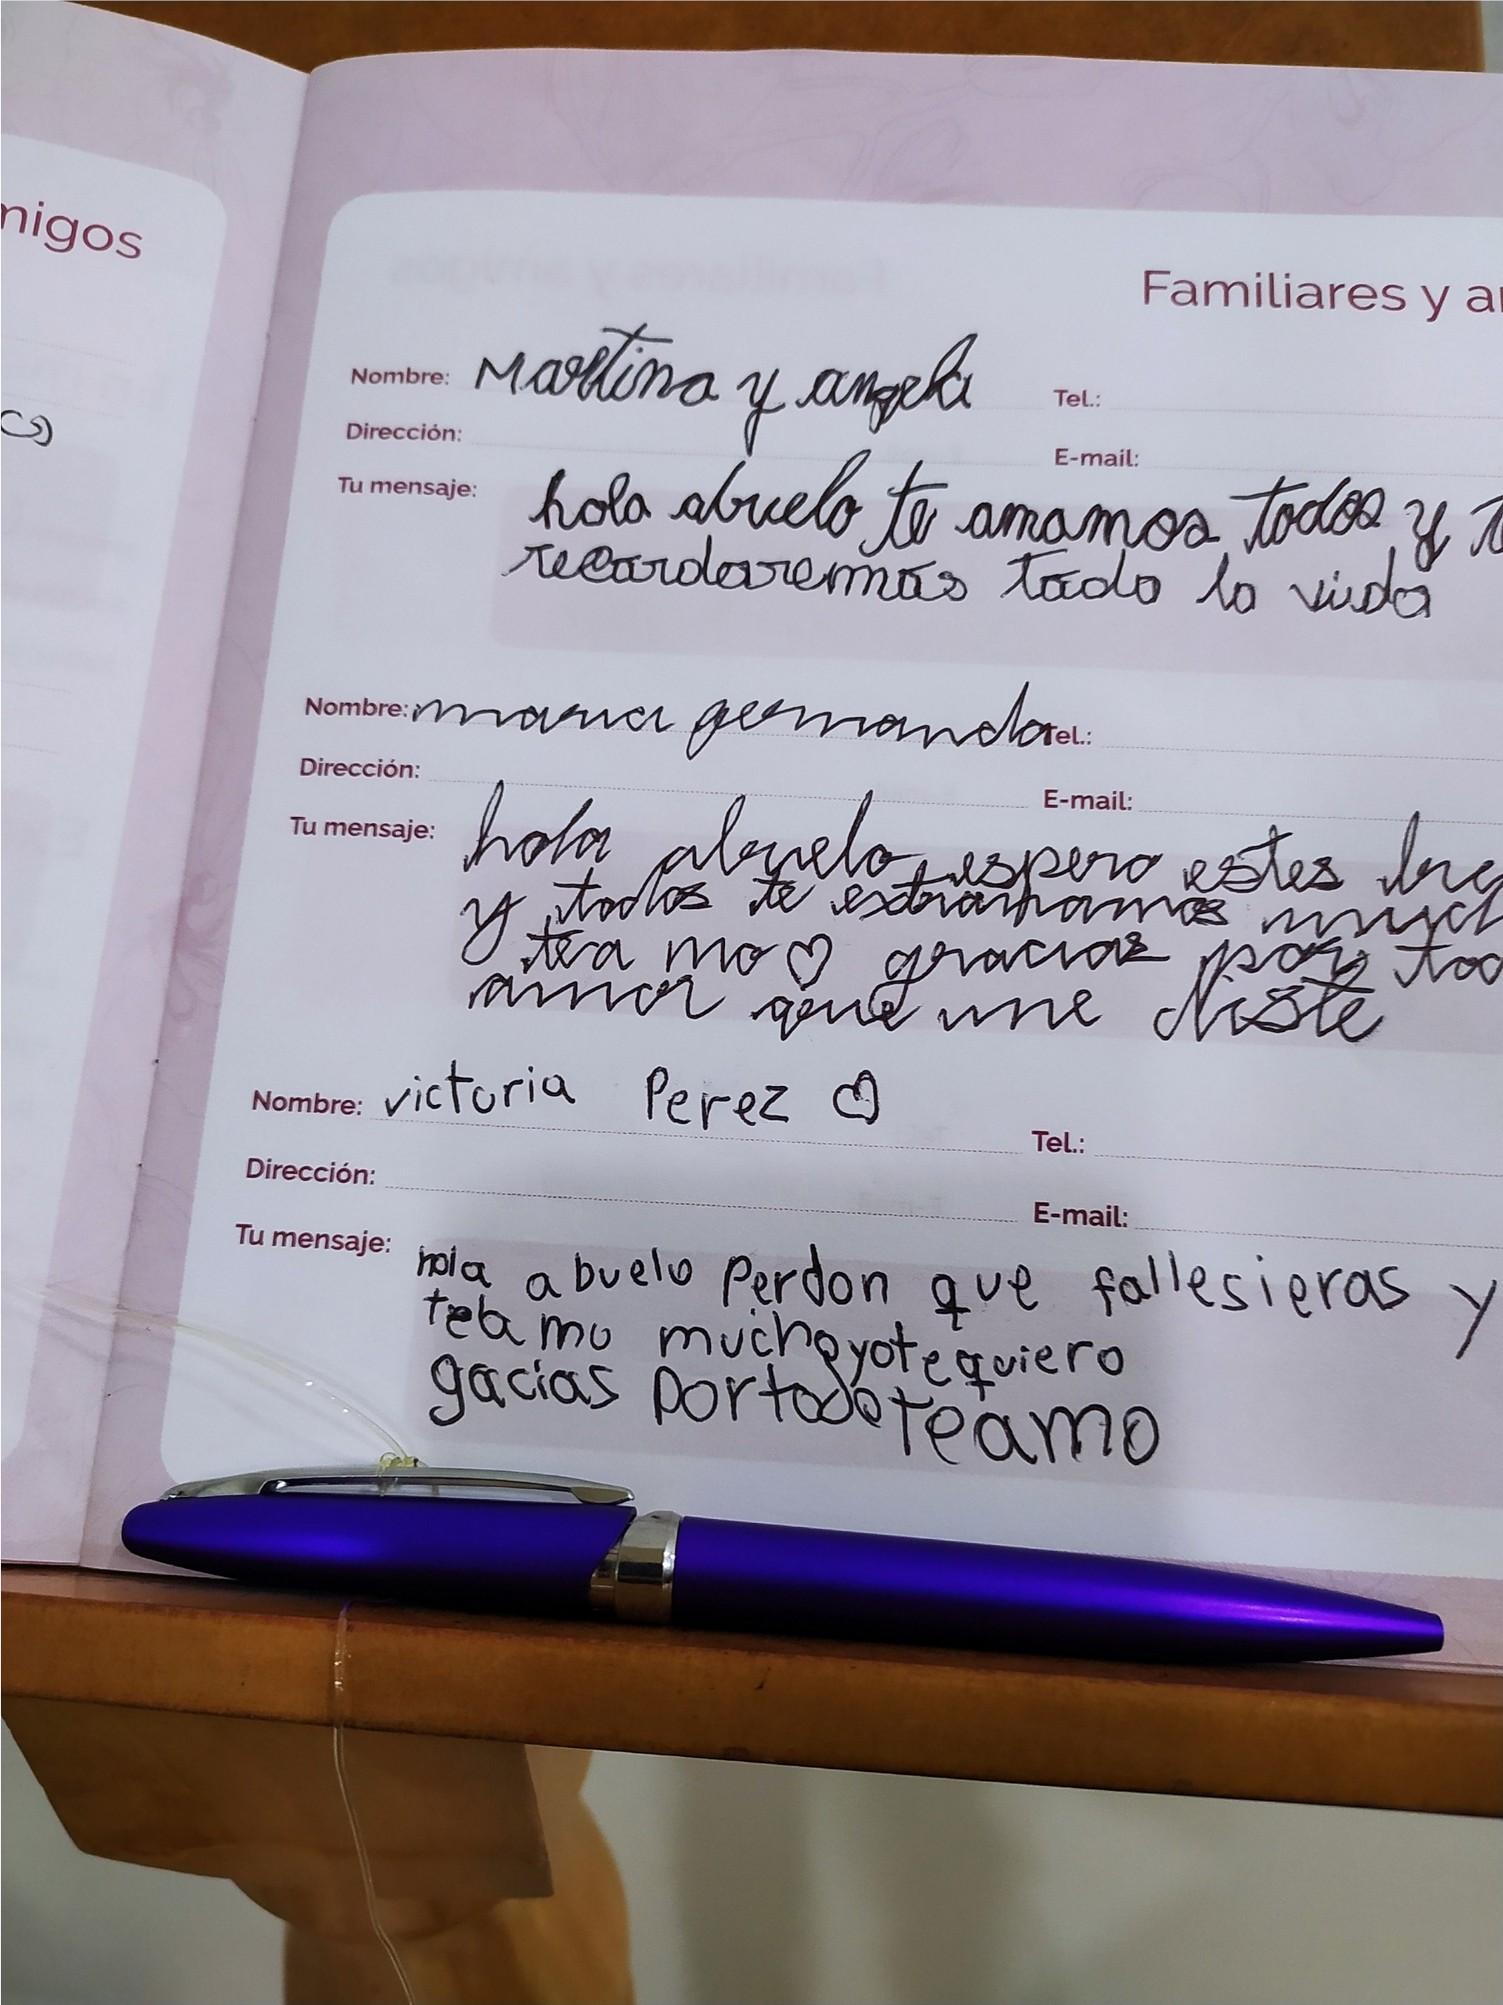 migos
Familiares y a
Nombre: Martina y angela Tel.:
Dirección: E-mail:
Tu mensaje: hola abuelo te amamos todos y
recordaremos toda la vida
Nombre: maria Tel.:
Dirección: E-mail:
Tu mensaje: hola abuelo espero estes
y todos te extrañamos much
tea mo ♡ gracias por tod
amor que me diste
Nombre: victoria Perez ♡ Tel.:
Dirección: E-mail:
Tu mensaje: hola abuelo Perdon que fallesieras y
teamo muchoyotequiero
gacias portodoteamo